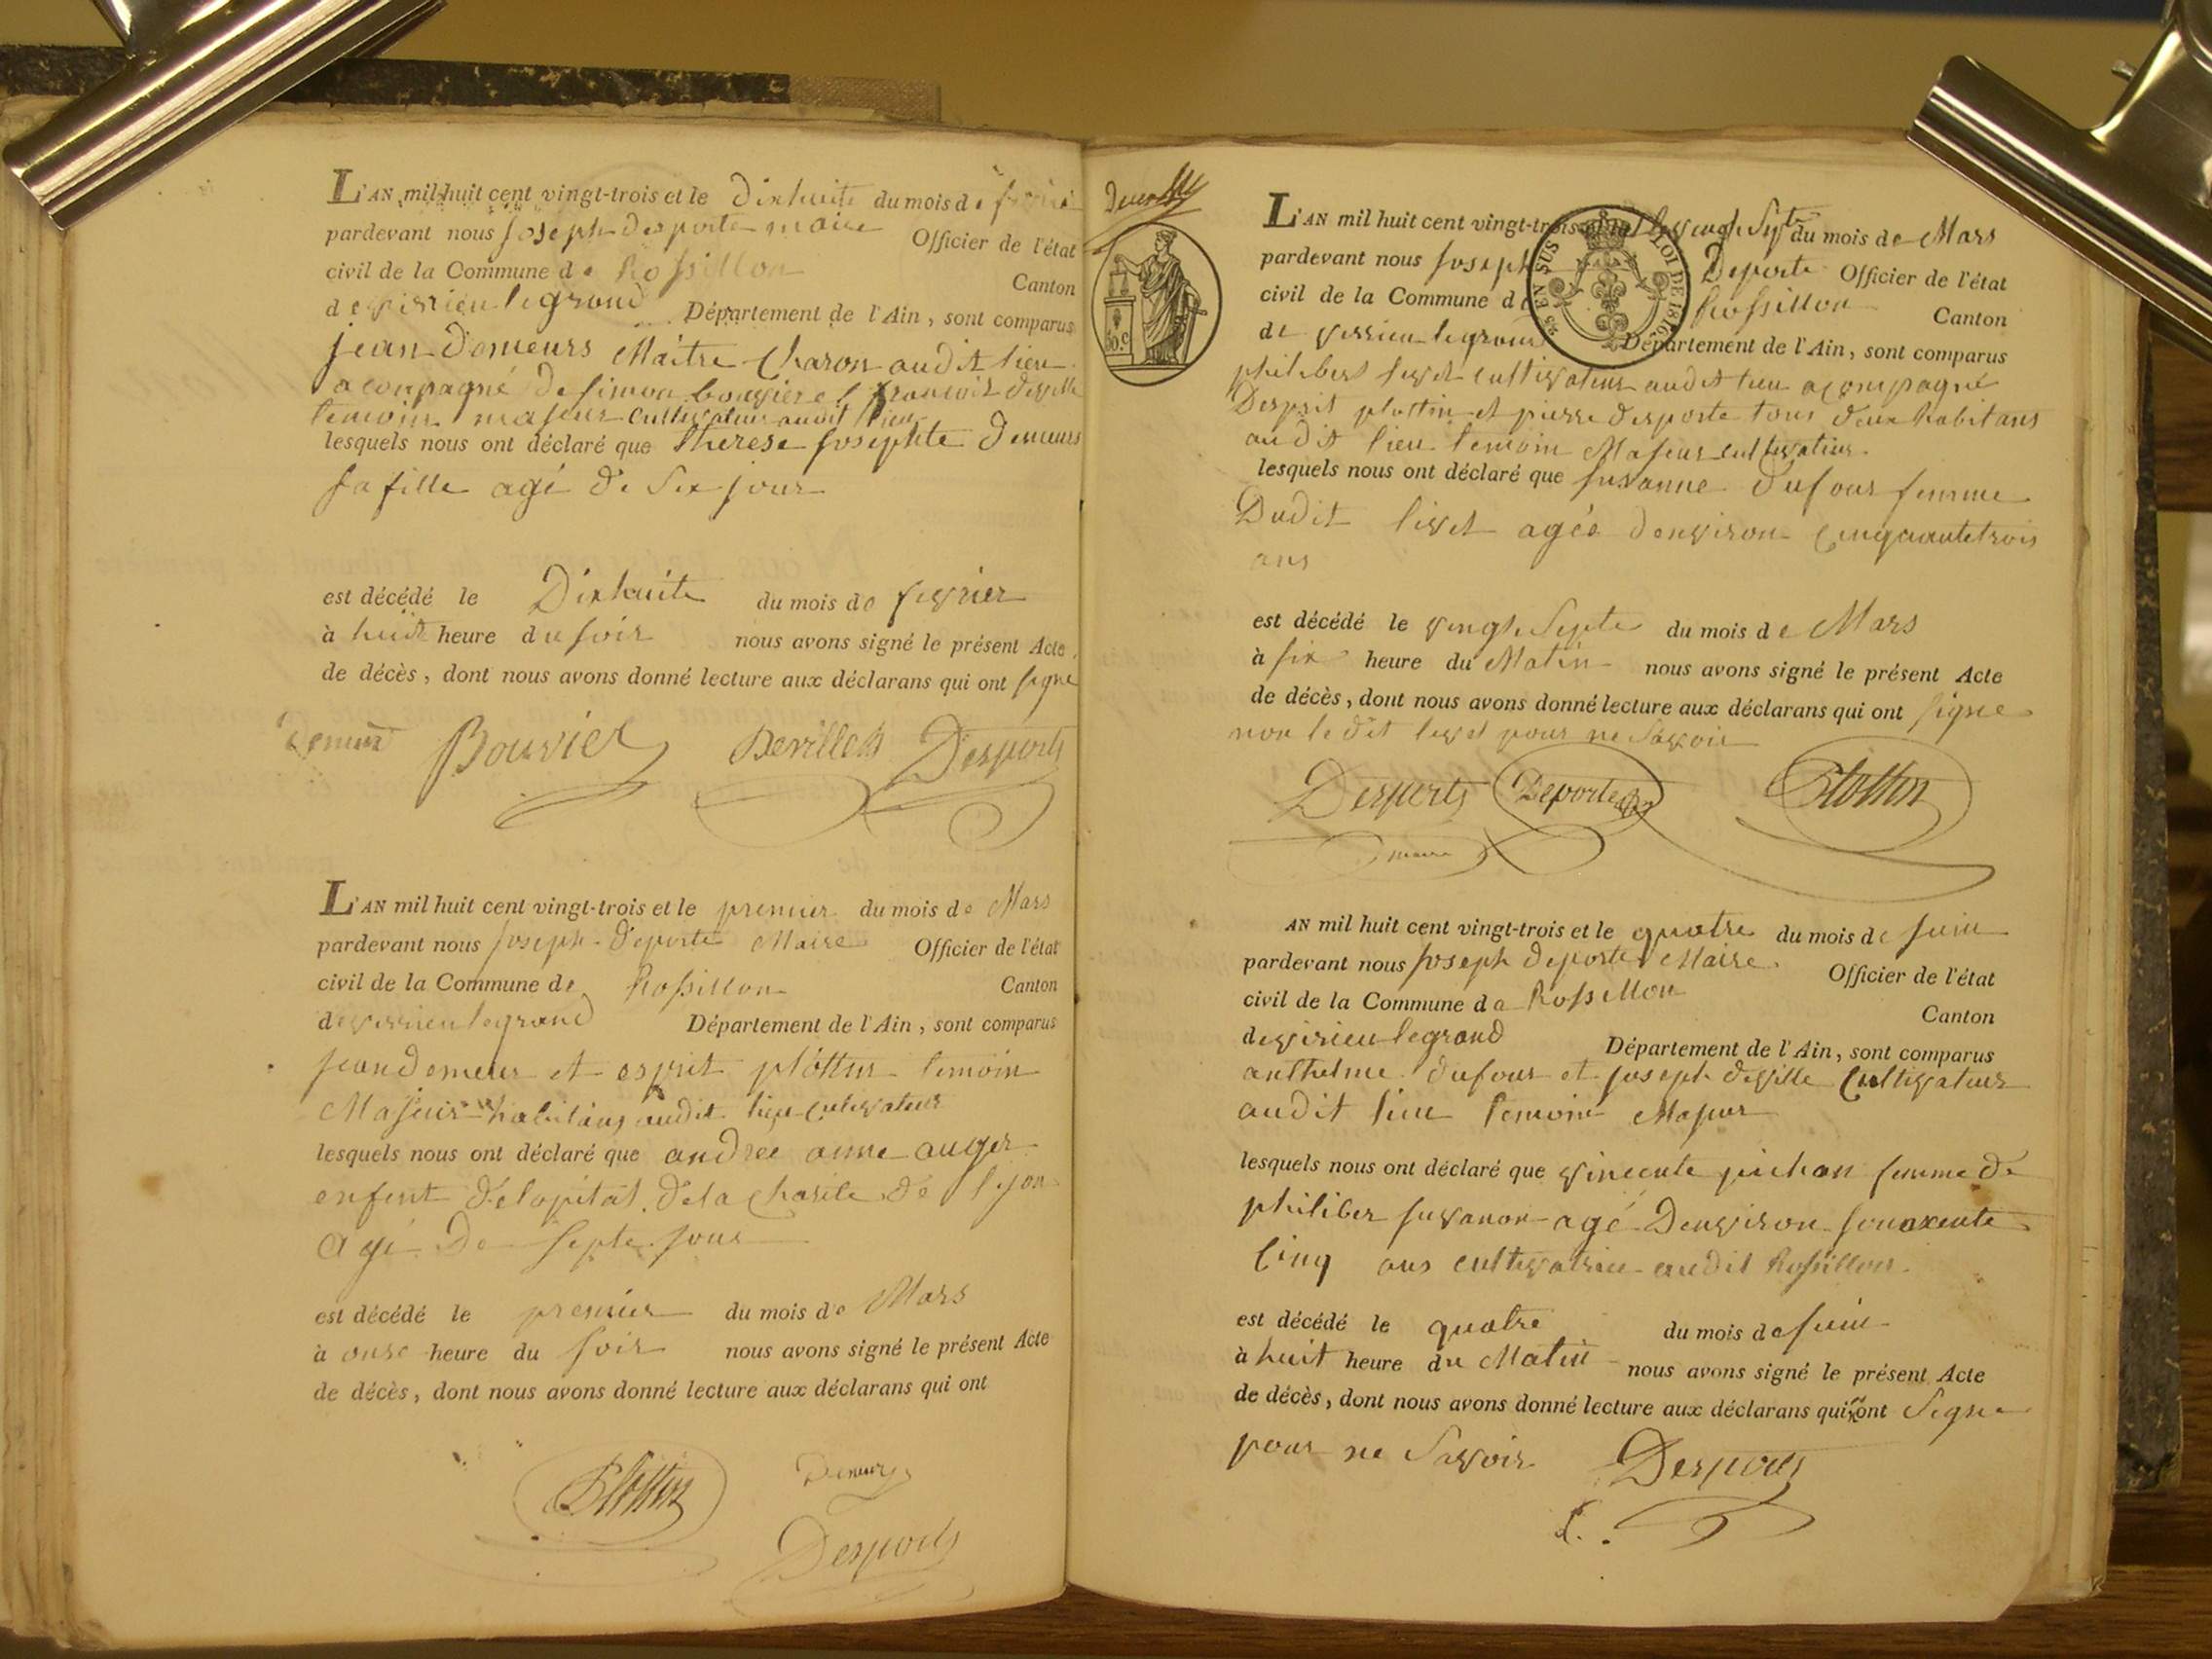 L'AN mil huit cent vingt-trois et le Dixhuite du mois de
pardevant nous joseph desporte maire Officier de l'état
civil de la Commune de Rossillon Canton
de virieu le grand Département de l'Ain, sont comparus
jean Demeurs Maitre Charon audit lieu
acompagné de simon bouvier et francois deville
temoin majeur cultivateur audit lieu
lesquels nous ont déclaré que therese josephte Demeurs
sa fille agé de Six jour
est décédé le Dixhuite du mois de fevrier
à huit heure du soir nous avons signé le présent Acte
de décès, dont nous avons donné lecture aux déclarans qui ont signé
Bouvier Deville Desporte
L'AN mil huit cent vingt-trois et le premier du mois de Mars
pardevant nous joseph Deporte Maire Officier de l'état
civil de la Commune de Rossillon Canton
de virieu le grand Département de l'Ain, sont comparus
jean demeur et esprit plottin temoin
Majeur habitans audit lieu cultivateur
lesquels nous ont déclaré que andree anne auger
enfent de lopital de la Charite de lyon
agé De Septe jour
est décédé le premier du mois de Mars
à onse heure du soir nous avons signé le présent Acte
de décès, dont nous avons donné lecture aux déclarans qui ont
Plottin Demeurs
Desporte
50.c
25 EN SUS LOI DE 1816
L'AN mil huit cent vingt-trois et le vingt Septe du mois de Mars
pardevant nous joseph Deporte Officier de l'état
civil de la Commune de Rossillon Canton
de virrieu le grand Département de l'Ain, sont comparus
philibert livet cultivateur audit lieu acompagné
Desprit plottin et pierre desporte tous deux habitans
audit lieu temoin Majeur cultivateur
lesquels nous ont déclaré que susanne dufour femme
Dudit livet agée denviron cinquantetrois
ans
est décédé le vingt Septe du mois de Mars
à six heure du Matin nous avons signé le présent Acte
de décès, dont nous avons donné lecture aux déclarans qui ont signé
non le dit livet pour ne Savoir
Desporte Deporte Plottin
maire
AN mil huit cent vingt-trois et le quatre du mois de juin
pardevant nous joseph deporte Maire Officier de l'état
civil de la Commune de Rossillon Canton
de virieu le grand Département de l'Ain, sont comparus
anthelme dufour et joseph deville Cultivateur
audit lieu temoin Majeur
lesquels nous ont déclaré que vincente pichon femme de
philiber juvanon agé Denviron
Cinq ans cultivatrice audit Rossillon
est décédé le quatre du mois de juin
à huit heure du Matin nous avons signé le présent Acte
de décès, dont nous avons donné lecture aux déclarans qui ont Signé
pour ne Savoir Desporte